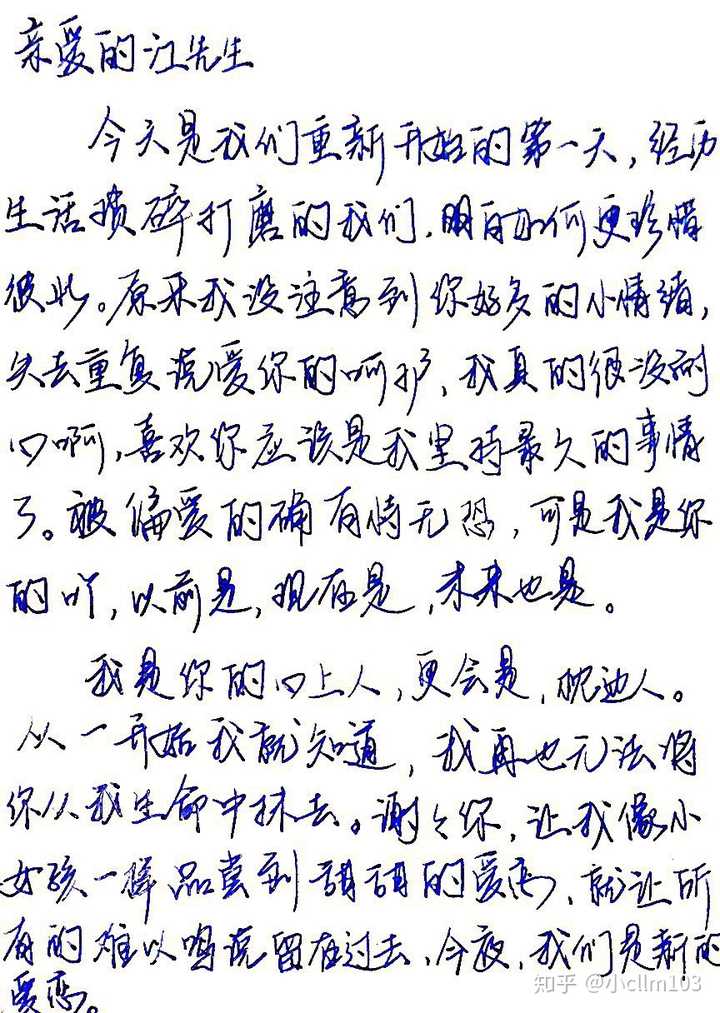 亲爱的江先生
今天是我们重新开始的第一天，经历
生活琐碎打磨的我们，明白如何更珍惜
彼此。原来我没注意到你好多的小情绪，
失去重复说爱你的呵护，我真的很没耐
心啊，喜欢你应该是我坚持最久的事情
了。被偏爱的确有恃无恐，可是我是你
的吖，以前是，现在是，未来也是。
我是你的心上人，更会是，枕边人。
从一开始我就知道，我再也无法将
你从我生命中抹去。谢々你，让我像小
女孩一样品尝到甜甜的爱恋，就让所
有的难以说留在过去，今夜，我们是新的
爱恋。
知乎 @小cllm103